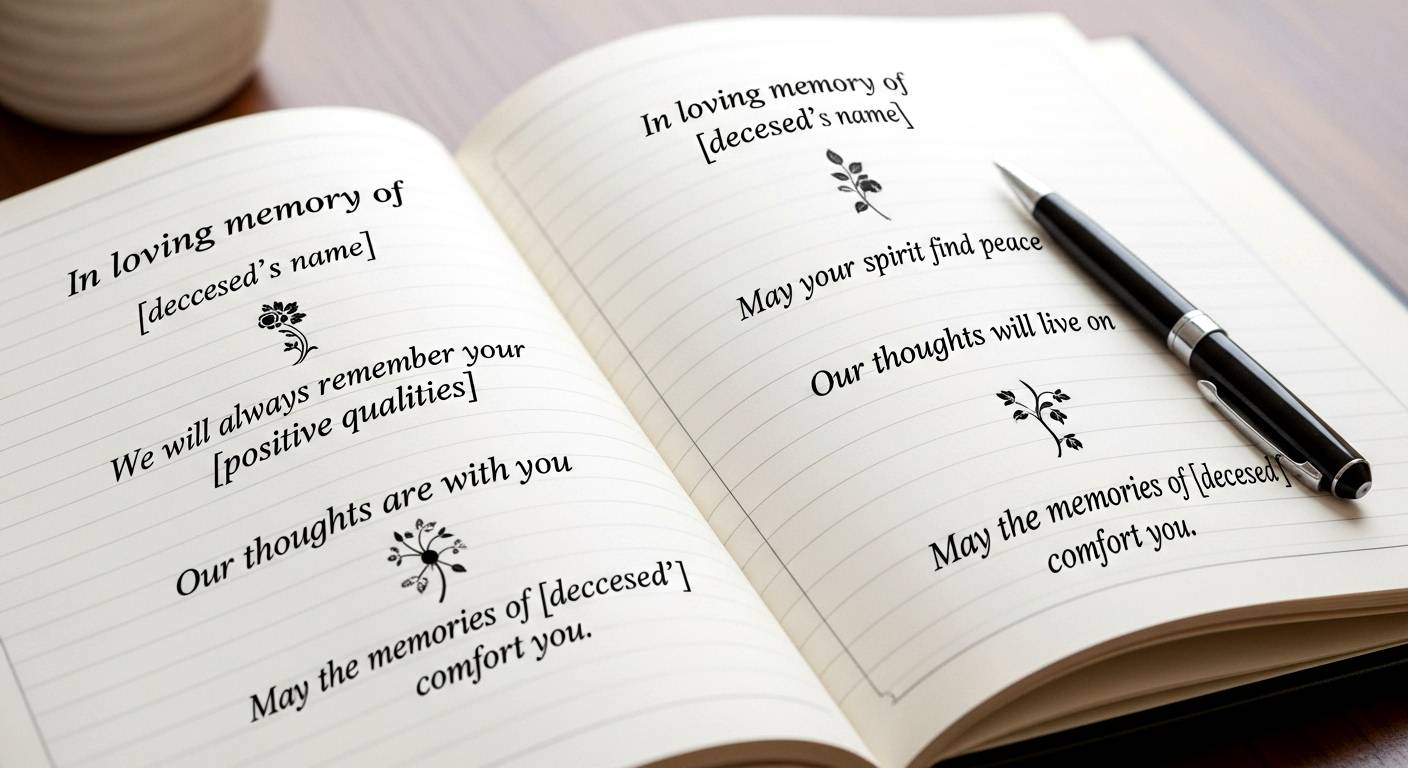 In loving memory of
[deccesed's name]
We will always remember your
[positive qualities]
Our thoughts are with you
May the memories of [deccesed']
comfort you.
In loving memory of
[decesed's name]
May your spirit find peace
Our thoughts will live on
May the memories of [decesed']
comfort you.